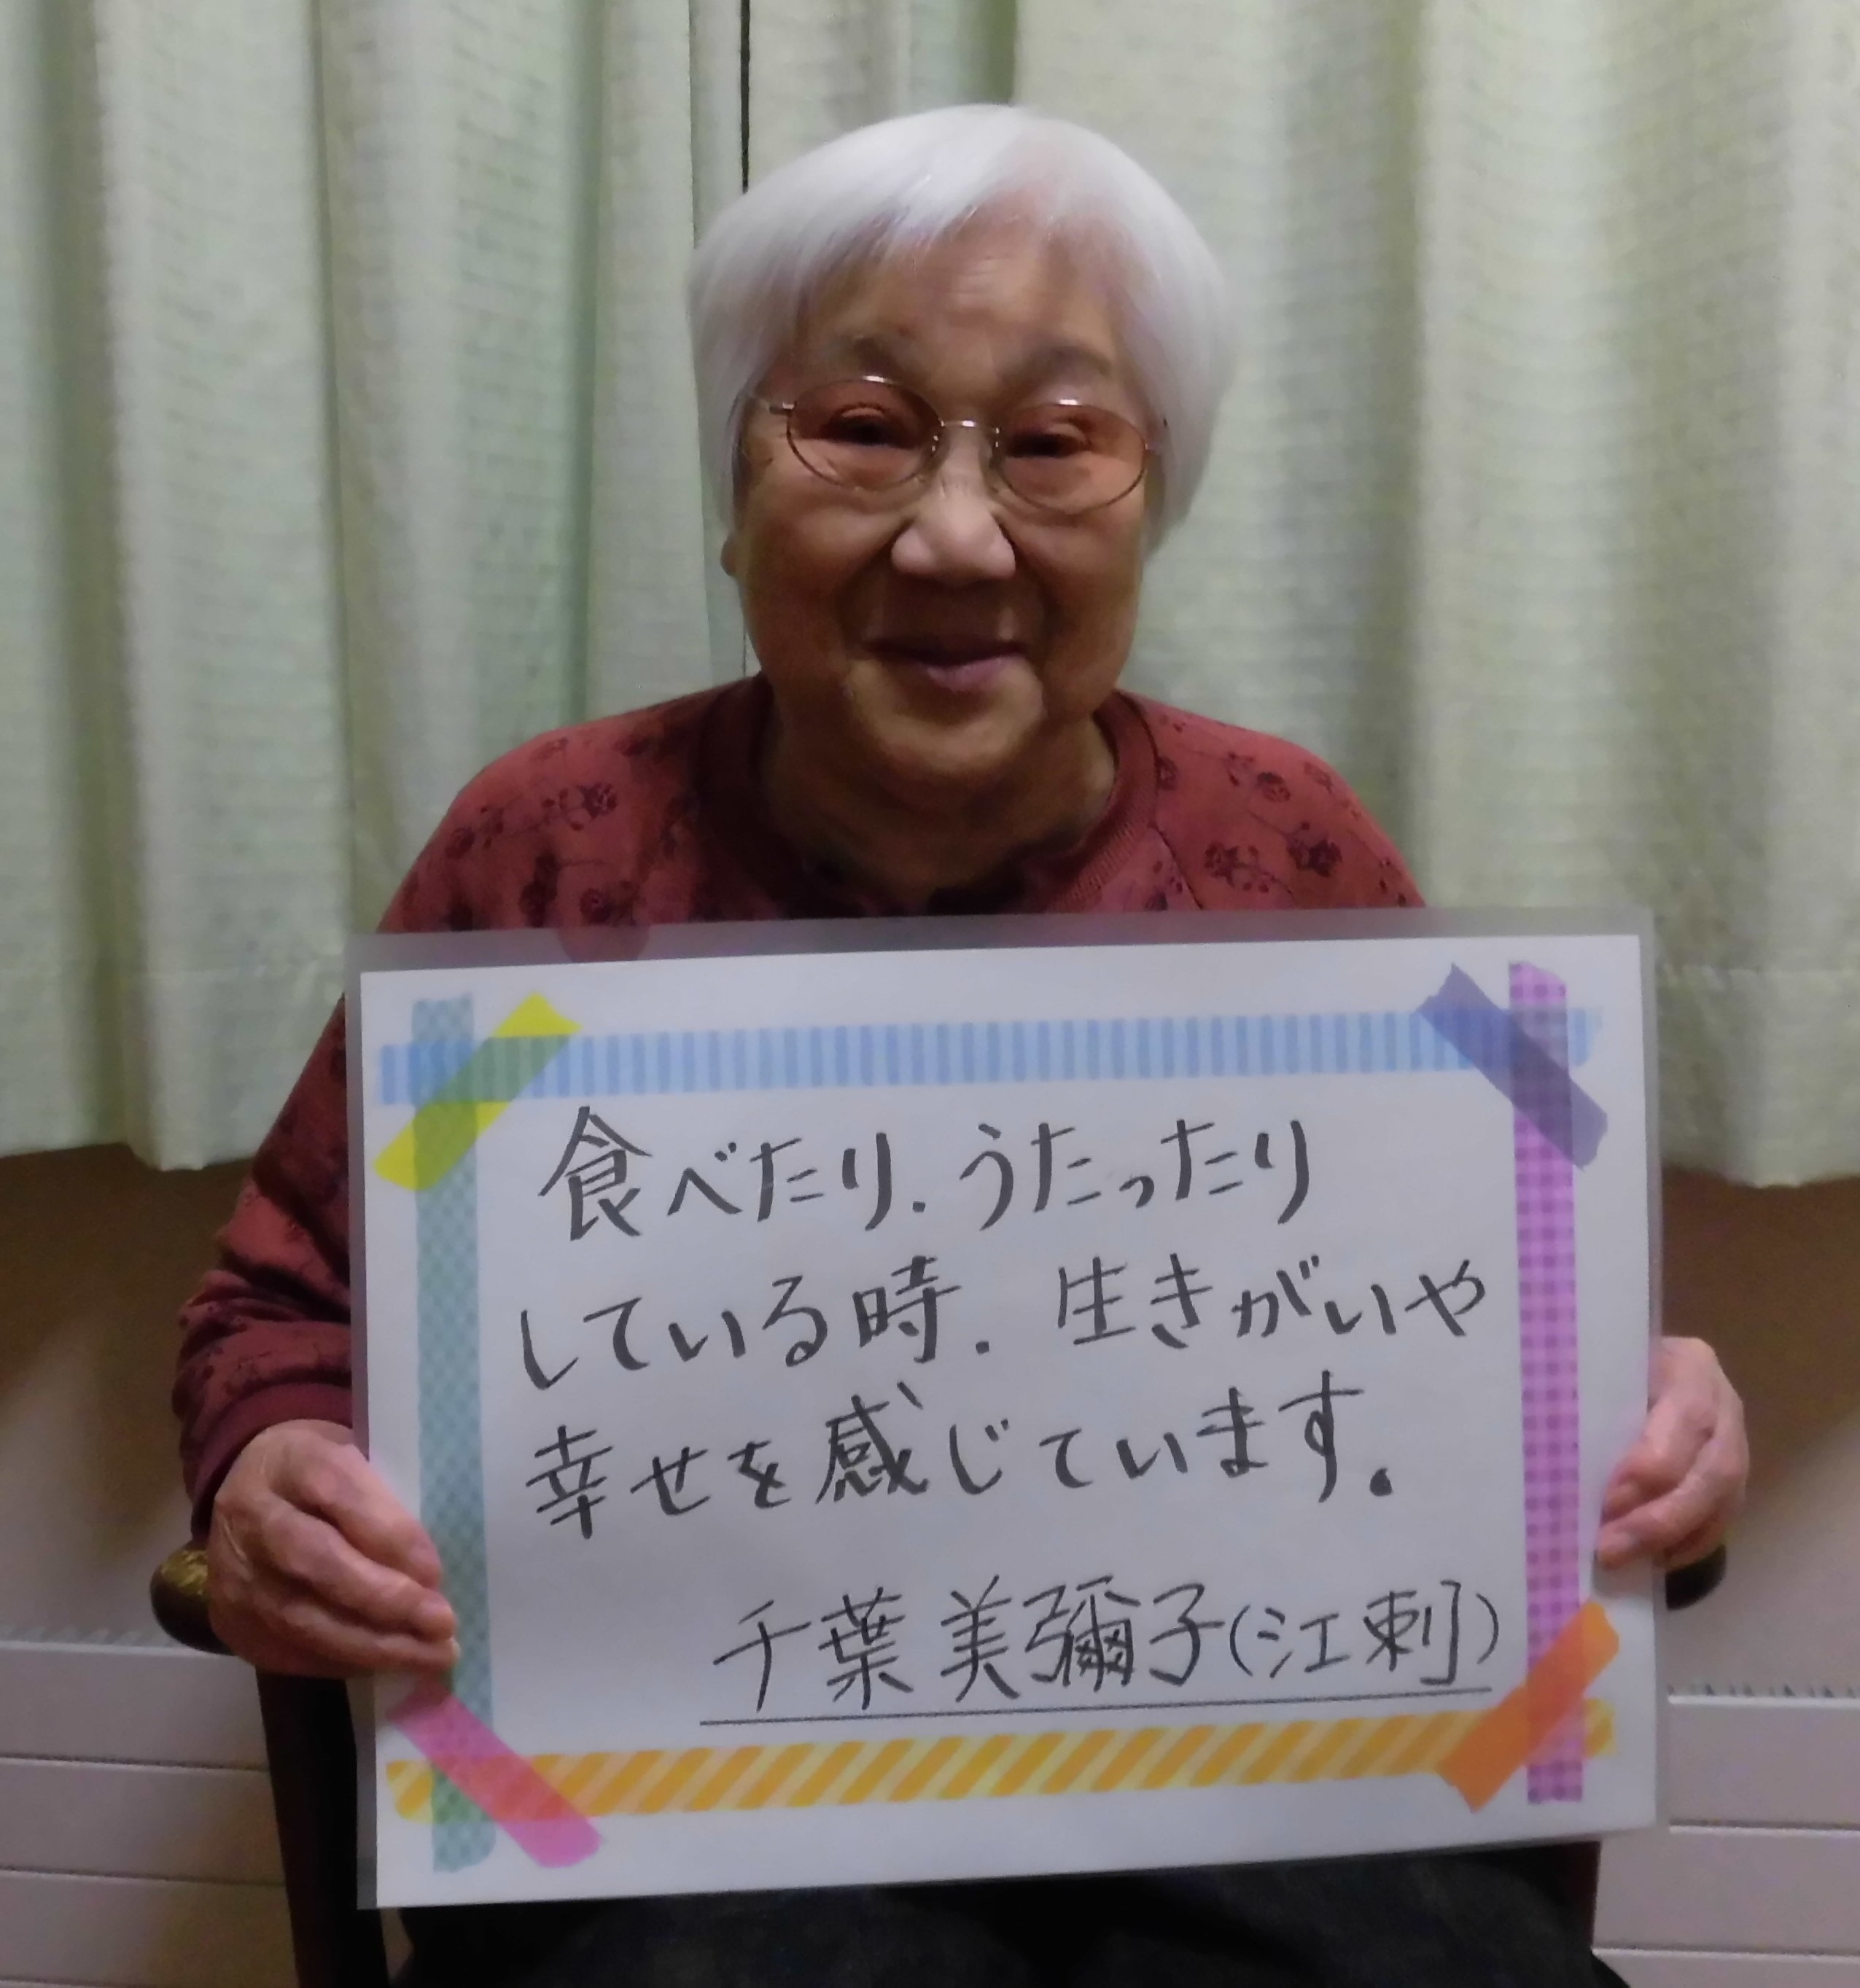 食べたり.うたったり
している時.生きがいや
幸せを感じています.
千葉美彌子(江刺)